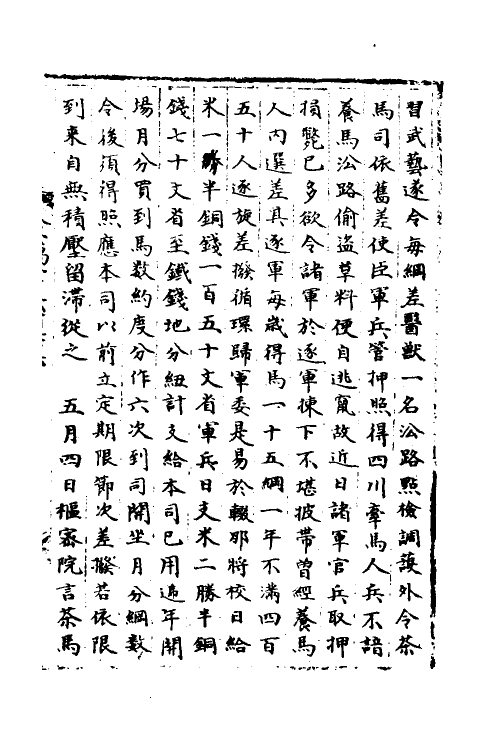 習武藝遂令每綱差醫獸一名沿路㸃檢調護外令茶
馬司依舊差使臣軍兵管押照得四川牽馬人兵不諳
養馬沿路偷盗草料便自逃竄故近日諸軍官兵取押
損斃已多欲令諸軍於逐軍揀下不堪披帶曾經養馬
人内選差其逐軍每歳得馬一十五綱一年不滿四百
五十人逐旋差撥循環歸軍委是易於輟那將校日給
米一勝半銅錢一百五十文省軍兵日支米二勝半銅
錢七十文省至鐵錢地分紐計支給本司已用逓年開
場月分買到馬数約度分作六次到司開坐月分綱数
令後須得照應本司以前立定期限節次差撥若依限
到来自無積壓留滯從之　五月四日樞宻院言茶馬